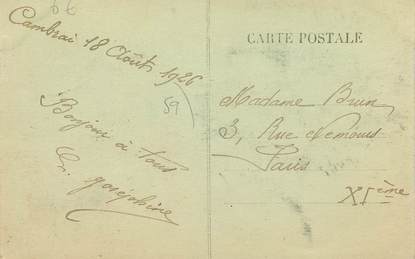 Cambrai 18 Août 1926
59
Bonjour à tous
Joséphine
CARTE POSTALE
Madame Brun
3, Rue Nemours
Paris
XIème